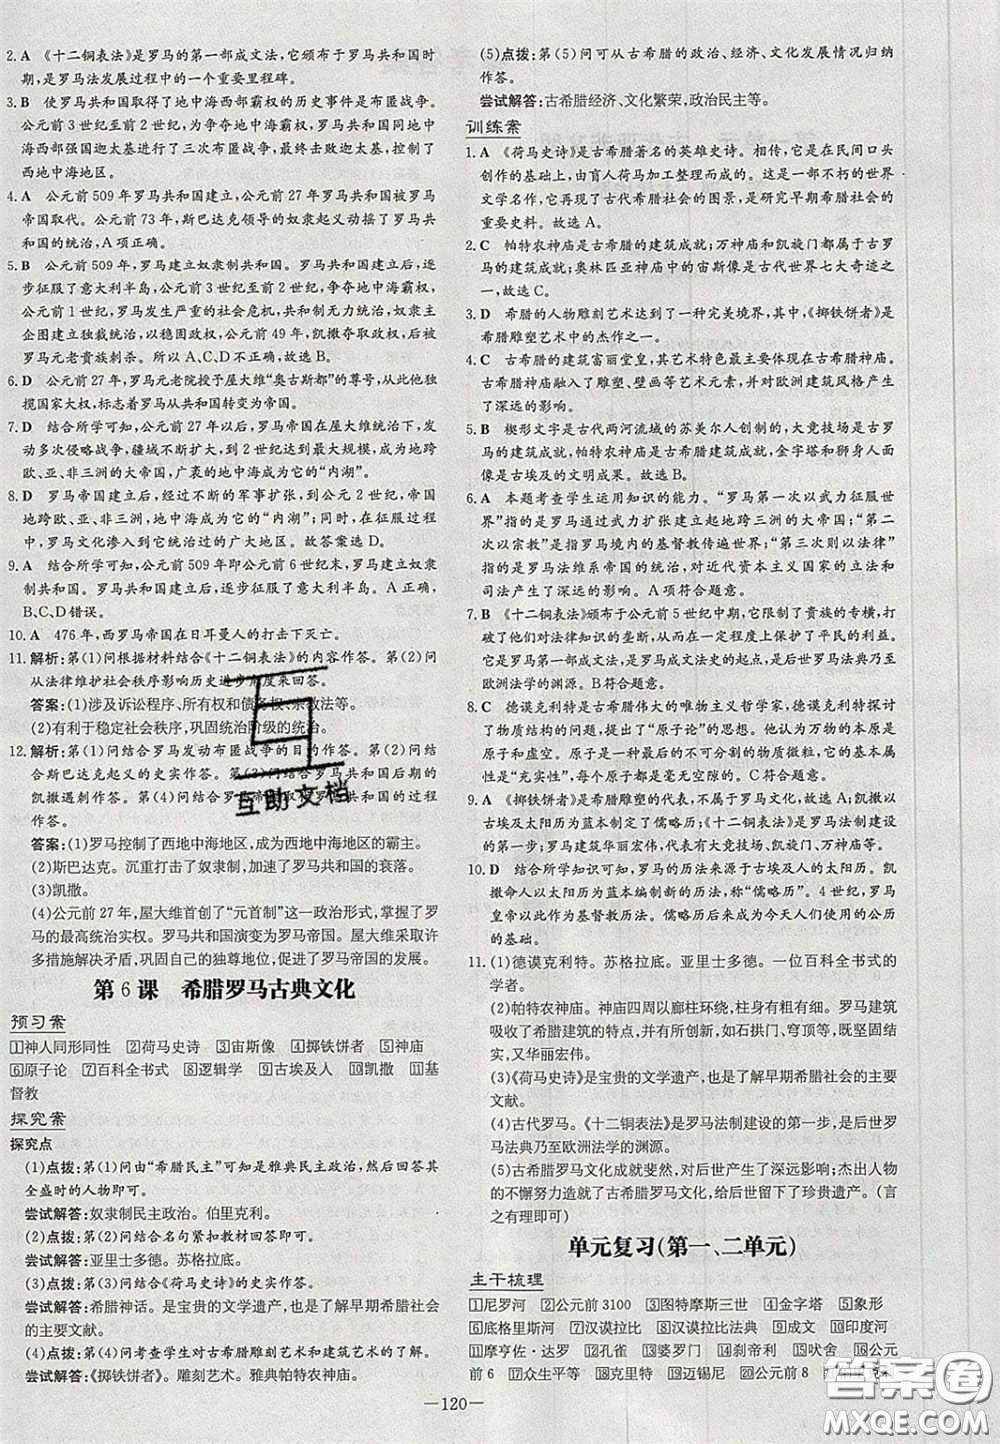 2. A 《十二铜表法》是罗马的第一部成文法,它颁布于罗马共和国时
期,是罗马法发展过程中的一个重要里程碑。
3. B 使罗马共和国取得了地中海西部霸权的历史事件是布匿战争。
公元前3世纪至公元前2世纪,为争夺地中海霸权,罗马共和国同地中
海西部强国迦太基进行了三次布匿战争,最后打败迦太基,控制了
西地中海地区。
4. A 公元前509年罗马共和国建立,公元前27年罗马共和国被罗马
帝国取代。公元前73年,斯巴达克领导的奴隶起义动摇了罗马共
和国的统治,A项正确。
5. B 公元前509年,罗马建立奴隶制共和国。罗马共和国建立后,逐
步征服了意大利半岛,公元前3—前2世纪,争夺地中海霸权,公元
前2世纪,罗马发生严重的社会危机,共和制无力统治,奴隶主
企图建立独裁统治,巩固政权,公元前49年,凯撒夺取政权,后被
罗马元老贵族刺杀。所以A、C、D不正确,故选B。
6. D 公元前27年,罗马元老院授予屋大维“奥古斯都”的尊号,从此他独
揽国家大权,标志着罗马从共和国转变为帝国。
7. D 结合所学可知,公元前27年以后,罗马帝国在屋大维统治下,发
动多次侵略战争,疆域不断扩大,到2世纪达到最大规模,成为地跨
欧、亚、非三洲的大帝国,广袤的地中海成为它的“内湖”。
8. D 罗马帝国建立后,经过不断的军事扩张,到公元2世纪,帝国的
地跨欧、亚、非三洲,地中海成了它的“内湖”;同时,在征服过程
中,罗马文化渗入到它统治过的广大地区。故答案选D。
9. A 结合所学可知,公元前509年即公元前6世纪末,罗马建立共和
国,此后,罗马开始了大规模的扩张,逐步征服了意大利半岛。A正确,
B、C、D错误。
10. A 476年,西罗马帝国在日耳曼人的打击下灭亡。
11. 解析:第(1)问根据材料结合《十二铜表法》的内容作答。第(2)问
从法律维护社会秩序影响历史进步角度来回答。
答案:(1)涉及诉讼程序、所有权和债务权、宗教法等。
(2)有利于稳定社会秩序,巩固统治阶级的统治。
12. 解析:第(1)问结合罗马发动布匿战争的目的作答。第(2)问结
合斯巴达克起义的史实作答。第(3)问结合罗马共和国后期的
凯撒遇刺作答。第(4)问结合罗马帝国取代罗马共和国的过程
作答。
答案:(1)罗马控制了西地中海地区,成为西地中海地区的霸主。
(2)斯巴达克。沉重打击了奴隶制,加速了罗马共和国的衰落。
(3)凯撒。
(4)公元前27年,屋大维首创了“元首制”这一政治形式,掌握了罗
马的最高统治实权。罗马共和国演变为罗马帝国。屋大维采取许
多措施解决矛盾,巩固自己的独尊地位,促进了罗马帝国的发展。
第6课 希腊罗马古典文化
预习案
①神人同形同性 ②荷马史诗 ③宙斯像 ④掷铁饼者 ⑤神庙
⑥原子论 ⑦百科全书式 ⑧逻辑学 ⑨古埃及人 ⑩凯撒 ⑪基
督教
探究案
探究点
(1)点拨:第(1)问由“希腊民主”可知是雅典民主政治,然后回答其
全盛时的人物即可。
尝试解答:奴隶制民主政治。伯里克利。
(2)点拨:第(2)问结合名句紧扣教材回答即可。
尝试解答:亚里士多德。苏格拉底。
(3)点拨:第(3)问结合《荷马史诗》的史实作答。
尝试解答:希腊神话。是宝贵的文学遗产,也是了解早期希腊社会
的主要文献。
(4)点拨:第(4)问考查学生对古希腊雕刻艺术和建筑艺术的了解。
尝试解答:《掷铁饼者》。雕刻艺术。雅典帕特农神庙。
(5)点拨:第(5)问可从古希腊的政治、经济、文化发展状况归纳
作答。
尝试解答:古希腊经济、文化繁荣,政治民主等。
训练案
1. A 《荷马史诗》是古希腊著名的英雄史诗。相传,它是在民间口头
创作的基础上,由盲人荷马加工整理而成的。这是一部不朽的世界
文学名作,它再现了古代希腊社会的图景,是研究早期希腊社会的
重要史料。故选A。
2. C 帕特农神庙是古希腊的建筑成就;万神庙和凯旋门都属于古罗
马的建筑成就;奥林匹亚神庙中的宙斯像是古代世界七大奇迹之
一,故选C。
3. D 希腊的人物雕刻艺术达到了一种完美境界,其中《掷铁饼者》是
希腊雕塑艺术中的杰作之一。
4. C 古希腊的建筑富丽堂皇,其艺术特色最主要体现在古希腊神庙。
古希腊神庙融入了雕塑、壁画等艺术元素,并对欧洲建筑风格产生
了深远的影响。
5. B 楔形文字是古代两河流域的苏美尔人创制的,大竞技场是古罗
马的建筑成就,帕特农神庙是古希腊建筑成就,金字塔和狮身人面
像是古埃及的文明成果。故选B。
6. A 本题考查学生运用知识的能力。“罗马第一次以武力征服世
界”指的是罗马通过武力扩张建立起地跨三洲的大帝国;“第二
次以宗教”指的是罗马境内的基督教传遍世界;“第三次则以法律”
指的是罗马法维系帝国的统治,对近代资本主义国家的立法和
司法产生了深远的影响。A项符合题意。
7. B 《十二铜表法》颁布于公元前5世纪中期,它限制了贵族的专横,打
破了他们对法律知识的垄断,从而在一定程度上保护了平民的利益。
它是罗马的第一部成文法,是罗马成文法史的起点,是后世罗马法典乃至
欧洲法学的渊源。B符合题意。
8. C 德谟克利特是古希腊伟大的唯物主义哲学家,德谟克利特探讨
了物质结构的问题,提出了“原子论”的思想。他认为,万物的本原是
原子和虚空。原子是一种最后的不可分割的物质微粒,它的基本属
性是“充实性”,每个原子都是毫无空隙的。C符合题意。
9. A 《掷铁饼者》是希腊雕塑的代表,不属于罗马文化。凯撒以古
埃及太阳历为蓝本制定了儒略历;《十二铜表法》是罗马法制建设
的第一步;罗马建筑华丽宏伟,有大竞技场、凯旋门、万神庙等。
10. D 结合所学知识可知,罗马的历法来源于古埃及人的太阳历。凯
撒命人以太阳历为蓝本编制新的历法,称“儒略历”。4世纪,罗马
皇帝以此作为基督教历法。儒略历后来成为今天人们使用的公历
的基础。
11. (1)德谟克利特。苏格拉底。亚里士多德。一位百科全书式的学者。
(2)帕特农神庙。神庙四周以廊柱环绕,柱身有粗有细。罗马建筑
吸收了希腊建筑的特点,并有所创新,如石拱门、穹顶等,既坚固结
实,又华丽宏伟。
(3)《荷马史诗》是宝贵的文学遗产,也是了解早期希腊社会的主要
文献。
(4)古代罗马。《十二铜表法》是罗马法制建设的第一步,是后世罗
马法典乃至欧洲法学的渊源。
(5)古希腊罗马文化成就斐然,对后世产生了深远影响;杰出人物
的不懈努力造就了古希腊罗马文化,给后世留下了珍贵遗产。(言
之有理即可)
单元复习(第一、二单元)
主干梳理
①尼罗河 ②公元前3100 ③图特摩斯三世 ④金字塔 ⑤象形
⑥底格里斯河 ⑦汉谟拉比 ⑧汉谟拉比法典 ⑨成文 ⑩印度河
⑪摩亨佐·达罗 ⑫孔雀 ⑬婆罗门 ⑭刹帝利 ⑮吠舍 ⑯公元
前6 ⑰众生平等 ⑱克里特 ⑲迈锡尼 ⑳公元前8
—120—
互助文档
答案圈
MXQE.COM